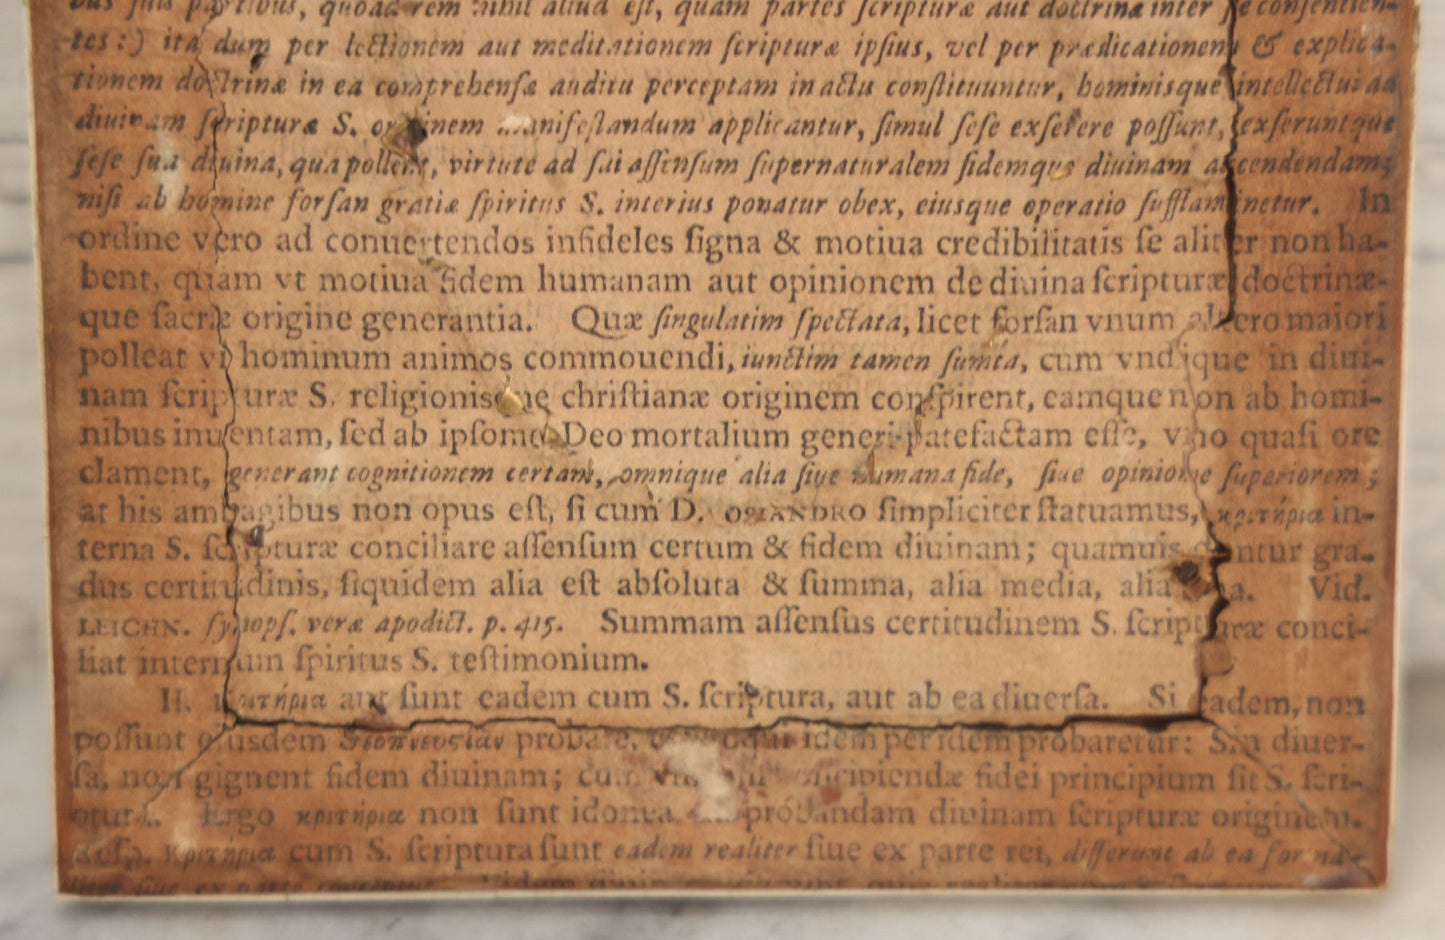 bus suis partibus, quoad rem nihil aliud eſt, quam partes ſcripturæ aut doctrinæ inter ſe conſentien-
tes:) ita dum per lectionem aut meditationem ſcripturæ ipſius, vel per prædicationem & explica-
tionem doctrinæ in ea comprehenſæ auditu perceptam in actu conſtituuntur, hominisque intellectui ad
diuinam ſcripturæ S. originem manifeſtandum applicantur, ſimul ſeſe exſerere poſſunt, exſeruntque
ſeſe ſua diuina, qua pollent, virtute ad ſui aſſenſum ſupernaturalem fidemque diuinam accendendam;
niſi ab homine forſan gratiæ ſpiritus S. interius ponatur obex, eiusque operatio ſufflaminetur. In
ordine vero ad conuertendos infideles ſigna & motiua credibilitatis ſe aliter non ha-
bent, quam vt motiua fidem humanam aut opinionem de diuina ſcripturæ doctrinæ-
que ſacræ origine generantia. Quæ ſingulatim ſpectata, licet forſan vnum altero maiori
polleat vi hominum animos commouendi, iunctim tamen ſumta, cum vndique in diui-
nam ſcripturæ S. religionisque chriſtianæ originem conſpirent, eamque non ab homi-
nibus inuentam, ſed ab ipſomet Deo mortalium generi patefactam eſſe, vno quaſi ore
clament, generant cognitionem certam, omnique alia ſiue humana fide, ſiue opinione ſuperiorem;
at his ambagibus non opus eſt, ſi cum D. OSIANDRO ſimpliciter ſtatuamus, κριτήρια in-
terna S. ſcripturæ conciliare aſſenſum certum & fidem diuinam; quamuis dentur gra-
dus certitudinis, ſiquidem alia eſt abſoluta & ſumma, alia media, alia Vid.
LEICHN. ſynopſ. veræ apodict. p. 415. Summam aſſenſus certitudinem S. ſcripturæ conci-
liat internum ſpiritus S. teſtimonium.
II. Κριτήρια aut ſunt eadem cum S. ſcriptura, aut ab ea diuerſa. Si eadem, non
poſſunt eiusdem θεοπνευστίαν probare, idem per idem probaretur: Sin diuer-
ſa, non gignent fidem diuinam; cum fidei principium ſit S. ſcri-
ptura. Ergo κριτήρια non ſunt idonea ad probandam diuinam ſcripturæ originem.
Reſp. Κριτήρια cum S. ſcriptura ſunt eadem realiter ſiue ex parte rei, differunt ab ea forma-
liter ſiue ex parte